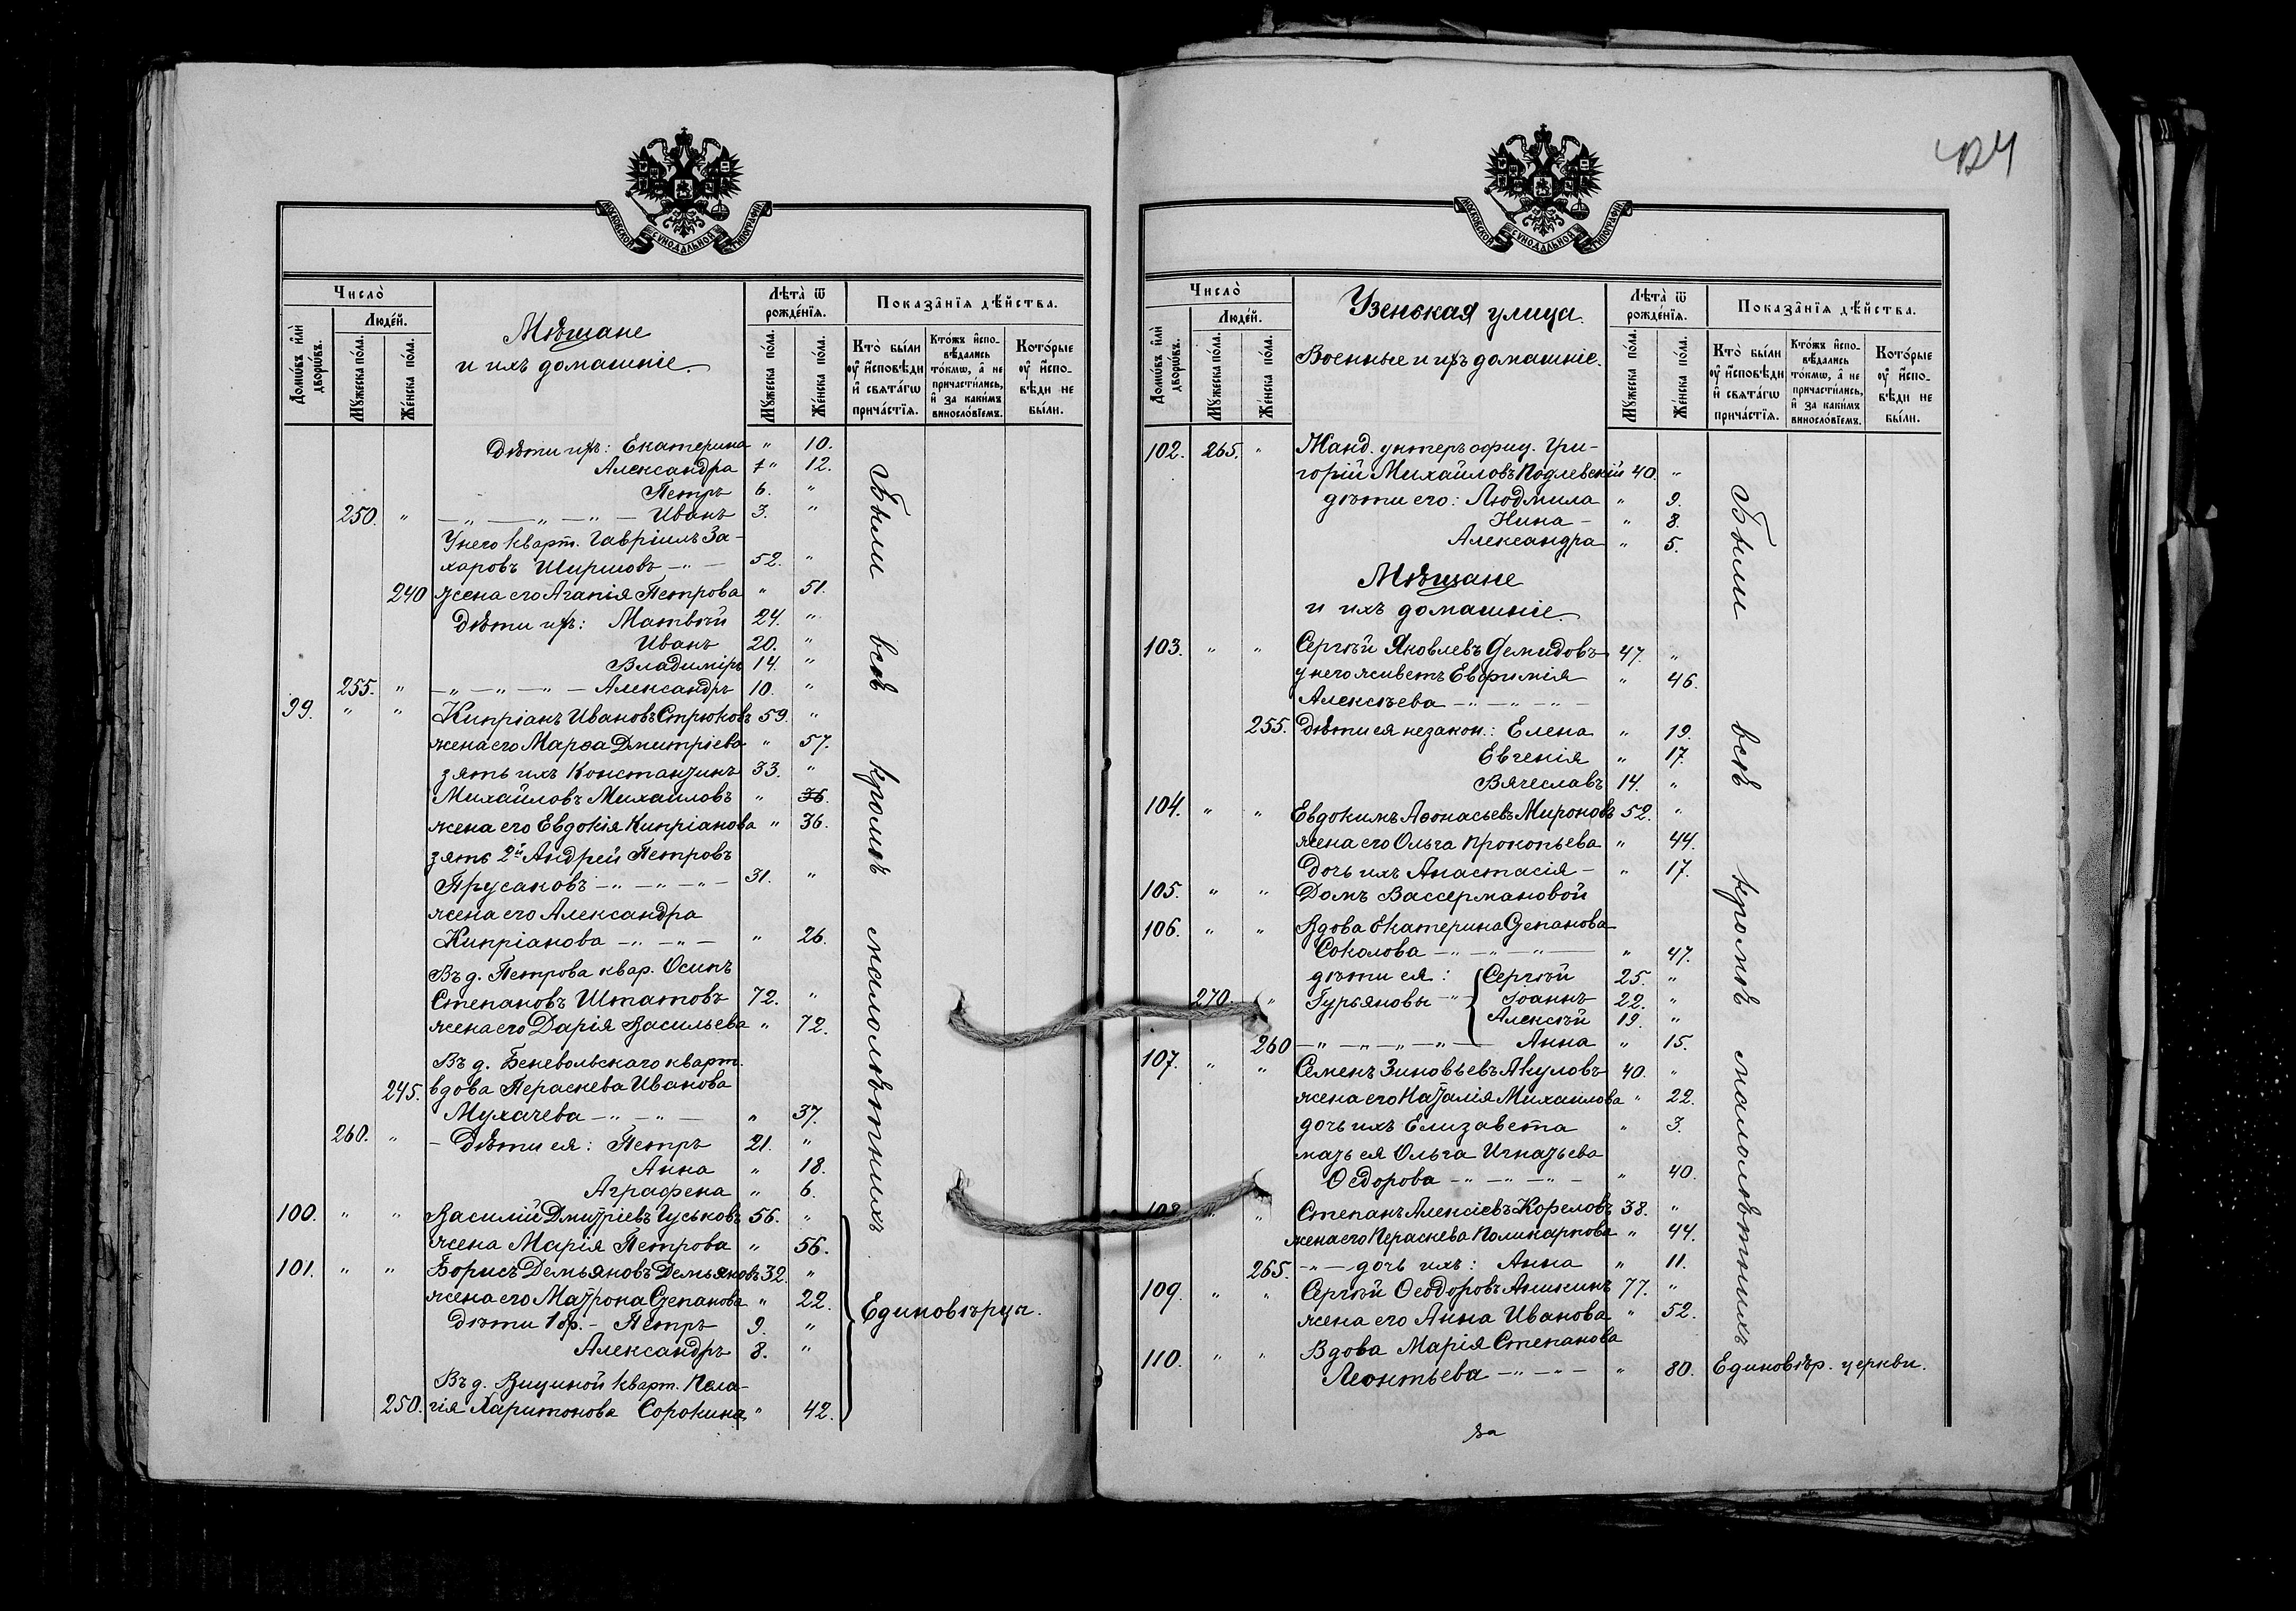 МОСКОВСКОЙ СѴНОДАЛЬНОЙ ТИПОГРАФІИ
Число̀
Людéй.
Домѡ́въ и҆лѝ дворѡ́въ.
Мꙋ́жеска по́ла.
Же́нска по́ла.
Мѣщане
и ихъ домашніе.
Лѣта̀ ѿ рожде́нїѧ.
Мꙋ́жеска по́ла.
Же́нска по́ла.
Показа̑нїѧ дѣ́йства.
Кто̀ бы́ли ᲂу҆ и҆́сповѣди и҆ свѧта́гѡ прича́стїѧ.
Кто́жъ и҆спо-вѣ́дались то́кмѡ, а҆ не причасти́лись, и҆ за каки́мъ винослѡ́вїемъ.
Кото́рые ᲂу҆ и҆́спо-вѣди не бы́ли.
Дѣти ихъ: Екатерина " 10.
Александра " 12.
Петръ 6. "
250. " Иванъ 3. "
У него кварт. Гавріилъ За-
харовъ Ширшовъ 52. "
240 жена его Агапія Петрова " 51.
Дѣти ихъ: Матвѣй 24. "
Иванъ 20. "
Владиміръ 14. "
255. " Александръ 10. "
99. " " Кипріанъ Ивановъ Стрюковъ 59. "
жена его Марѳа Дмитріева " 57.
зять ихъ Константинъ 33. "
Михайловъ Михаиловъ " 36.
жена его Евдокія Кипріанова " 36.
зять 2й Андрей Петровъ
Прусаковъ 31. "
жена его Александра
Кипріанова " 26.
Въ д. Петрова квар. Осипъ
Степановъ Штатовъ 72. "
жена его Дарія Васильева " 72.
Въ д. Беневольскаго кварт.
245. вдова Параскева Иванова
Мухачева " 37.
260. " Дѣти ея: Петръ 21. "
Анна " 18.
Аграфена " 6.
100. " " Василій Дмитріевъ Гуськовъ 56. "
жена Марія Петрова " 56.
101. " " Борисъ Демьяновъ Демьяновъ 32. "
жена его Матрона Степанова " 22.
Дѣти 1 бр. - Петръ 9. "
Александръ 8. "
Въ д. Вициной кварт. Пела-
250. гія Харитонова Сорокина " 42.
Были всѣ кромѣ малолѣтнихъ
Единовѣрцы.
424
МОСКОВСКОЙ СѴНОДАЛЬНОЙ ТИПОГРАФІИ
Число̀
Людéй.
Домѡ́въ и҆лѝ дворѡ́въ.
Мꙋ́жеска по́ла.
Же́нска по́ла.
Узенская улица.
Военные и ихъ домашніе.
Лѣта̀ ѿ рожде́нїѧ.
Мꙋ́жеска по́ла.
Же́нска по́ла.
Показа̑нїѧ дѣ́йства.
Кто̀ бы́ли ᲂу҆ и҆́сповѣди и҆ свѧта́гѡ прича́стїѧ.
Кто́жъ и҆спо-вѣ́дались то́кмѡ, а҆ не причасти́лись, и҆ за каки́мъ винослѡ́вїемъ.
Кото́рые ᲂу҆ и҆́спо-вѣди не бы́ли.
102. 265. " Жанд. унтеръ офиц. Гри-
горій Михайловъ Подлевскій 40. "
дѣти его: Людмила " 9.
Нина - " 8.
Александра " 5.
Мѣщане
и ихъ домашніе.
103. " " Сергѣй Яковлевъ Демидовъ 47. "
у него живетъ Евфимія " 46.
Алексѣева
255. Дѣти ея незакон.: Елена " 19.
Евгенія " 17.
Вячеславъ 14. "
104. " " Евдокимъ Аѳонасьевъ Мироновъ 52. "
жена его Ольга Прокопьева " 44.
Дочь ихъ Анастасія - " 17.
105. " " Домъ Вассермановой
106. " " Вдова Екатерина Степанова
Соколова " 47.
дѣти ея: Сергѣй 25. "
270. " Гурьяновы Іоаннъ 22. "
Алексѣй 19. "
260 Анна " 15.
107. " " Семенъ Зиновьевъ Акуловъ 40. "
жена его Наталія Михаилова " 22.
дочь ихъ Елизавета " 3.
мать ея Ольга Игнатьева
Ѳедорова " 40.
108. " " Степанъ Алексіевъ Кореловъ 38. "
жена его Параскева Поликарпова " 44.
265. дочь ихъ: Анна " 11.
109. " " Сергѣй Ѳеодоровъ Аникинъ 77. "
жена его Анна Иванова " 52.
110. " " Вдова Марія Степанова
Леонтьева " 80.
Были всѣ кромѣ малолѣтнихъ
Единовѣр. церкви.